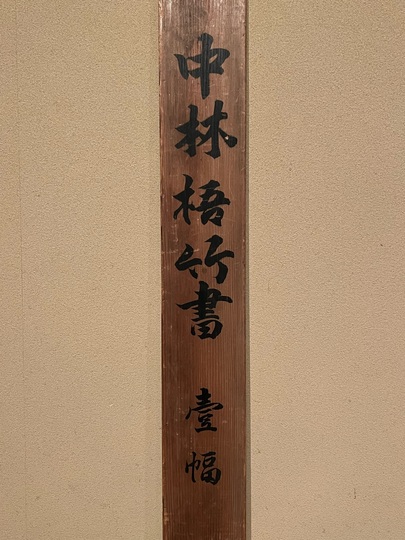 中林梧竹書 壹幅